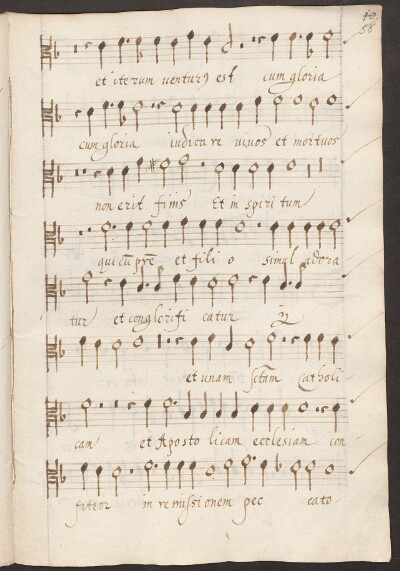 10
58
et iterum ventur9 est cum gloria
cum gloria iudicare viuos et mortuos
non erit finis Et in spiritum
qui cũ pr̃e et filio simul adora
tur et conglorifi catur ij
et unam sctam Catholi
cam et Aposto licam ecclesiam con
fiteor in remissionem pec cato